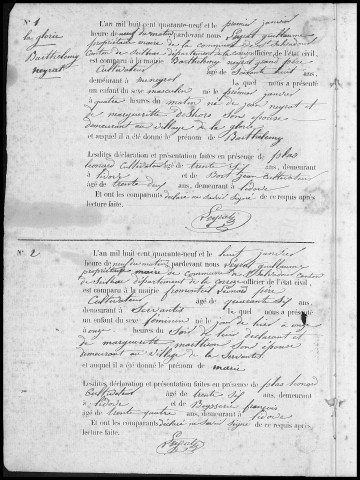 N° 1
la gloria
Barthelemy
neyrat
L'an mil huit cent quarante-neuf et le premier janvier
heure de neuf du matin pardevant nous Peyrat guillaume
propriétaire maire de la commune de St
canton de département de la officier de l'état civil
est comparu à la mairie Barthelemy neyrat grand père
Cultivateur âgé de soixante huit ans,
demeurant à qui nous a présenté
un enfant du sexe masculin né le premier janvier
à quatre heures du matin né de jean neyrat et
de marguerite son épouse
demeurant au village de la gloria
et auquel il a été donné le prénom de Barthelemy
Lesdites déclaration et présentation faites en présence de plas
leonard Cultivateur âgé de trente six ans, demeurant
à et de Bort jean Cultivateur
âgé de trente six ans, demeurant à
Et ont les comparants déclaré ne savoir signer de ce requis après
lecture faite.
Peyrat
N° 2
L'an mil huit cent quarante-neuf et le huit janvier
heure de neuf du matin pardevant nous Peyrat guillaume
propriétaire maire de commune de St canton
de département de la correze officier de l'état civil
est comparu à la mairie père
Cultivateur âgé de quarante six ans,
demeurant à Servantis qui nous a présenté
un enfant du sexe féminin né le jour de hier à onze
à onze heures du Soir de lui déclarant et
de marguerite son épouse
demeurant au village de la Servantis
et auquel il a été donné le prénom de marie
Lesdites déclaration et présentation faites en présence de plas leonard
Cultivateur âgé de trente six ans, demeurant
à et de Beysserie françois
âgé de trente quatre ans, demeurant à
Et ont les comparants déclaré ne savoir signer de ce requis après
lecture faite.
Peyrat